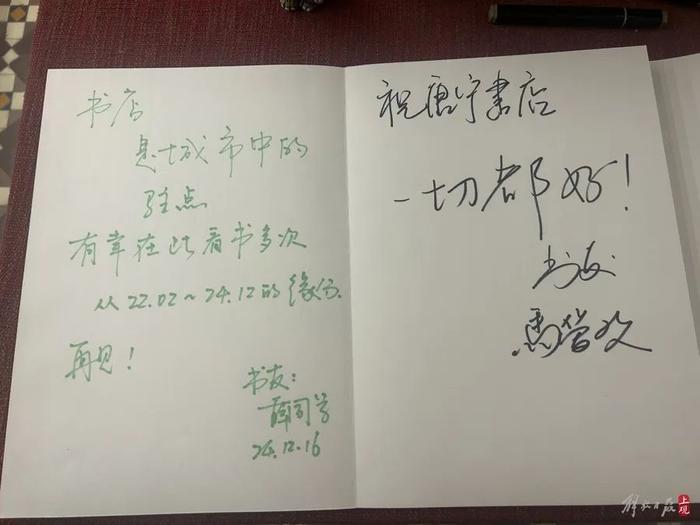 书店
是城市中的
驻点
有幸在此看书多次
从22.02~24.12的缘分.
再见！
书友：
薛同学
24.12.16
祝唐宁書店
一切都好！
书友
解放日报 上观